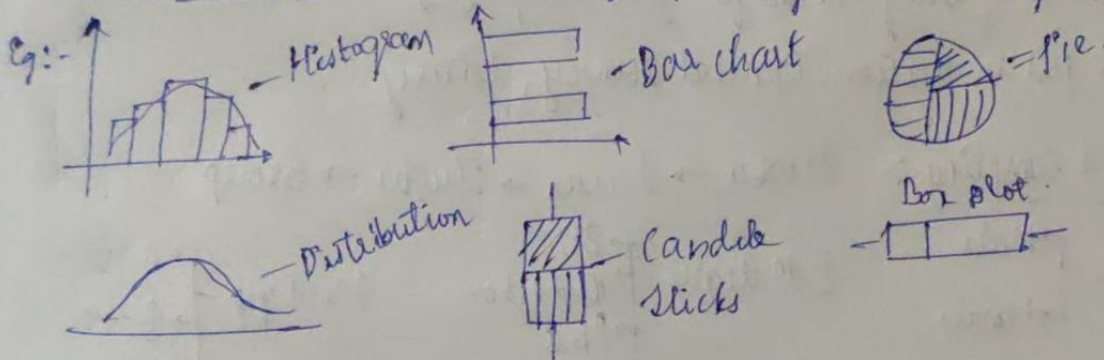 Eg:-
Histogram
Bar chart
Pie
Distribution
Candle
sticks
Box plot.